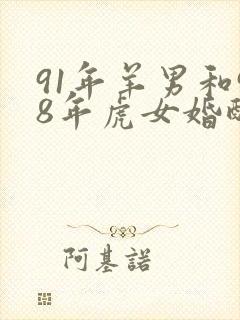 91年羊男和
8年虎女婚
阿基諾